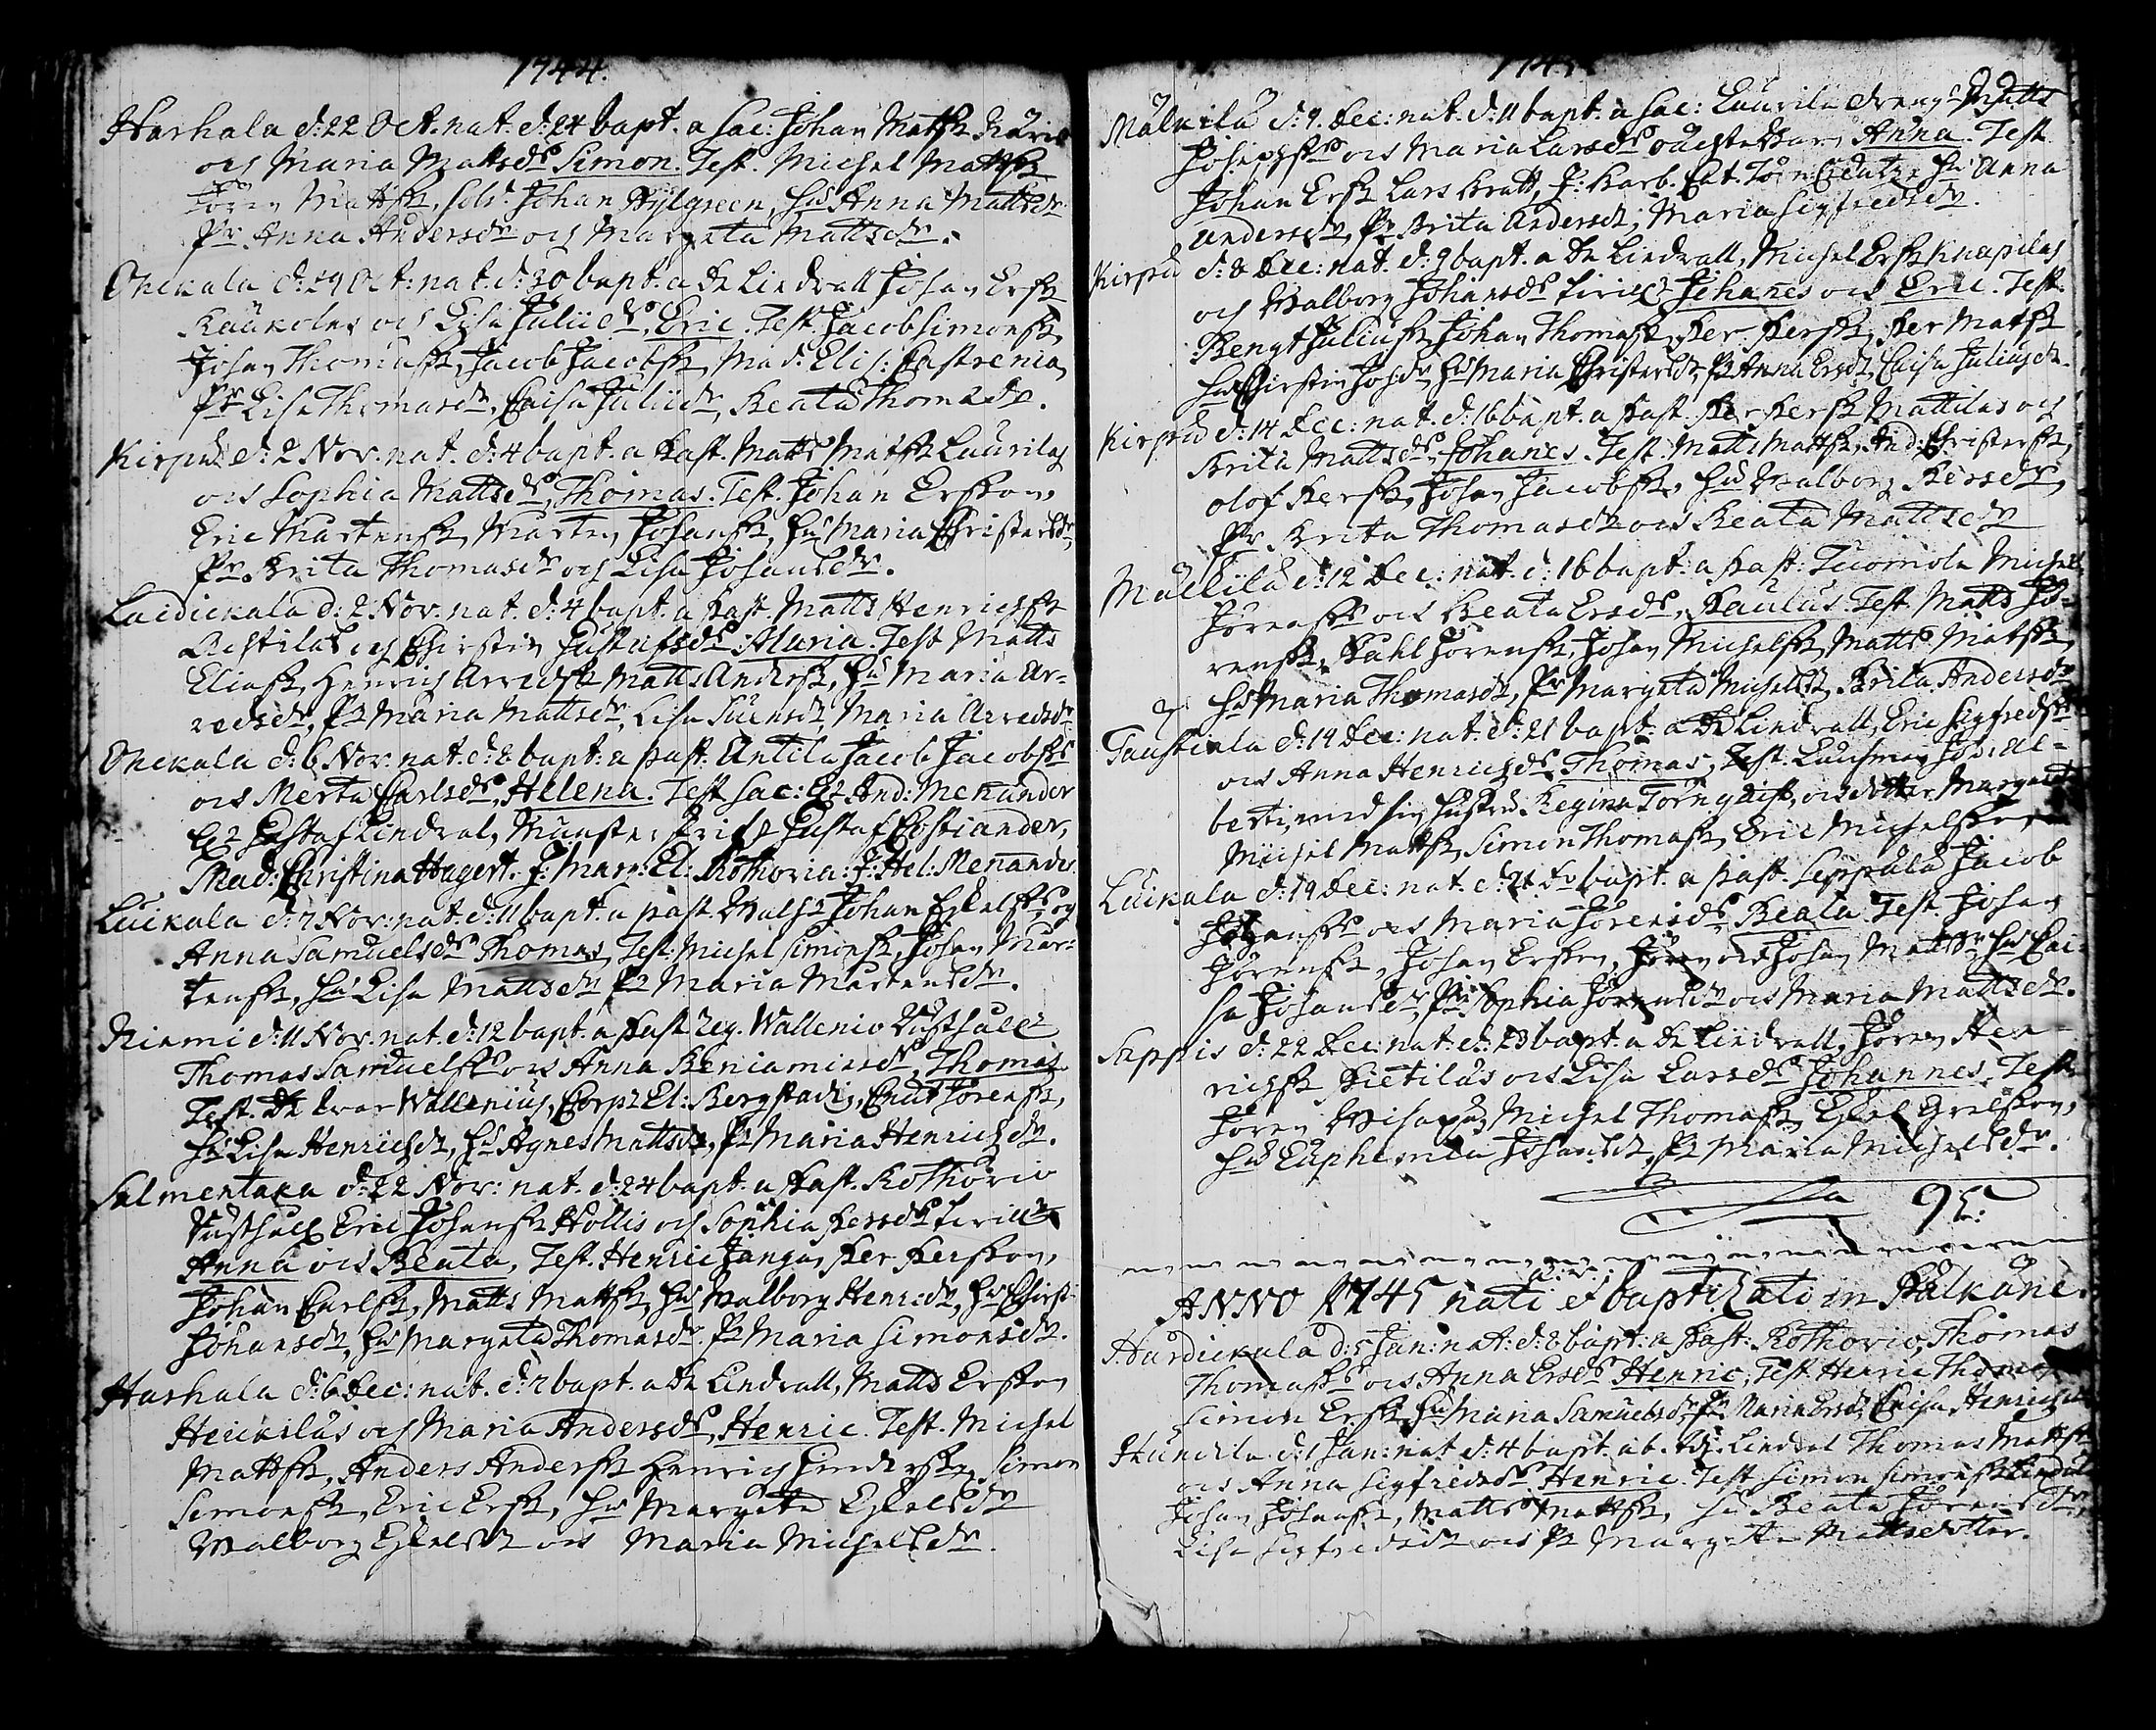 1744.
Harhala d: 22 Oct. nat. d: 24 bapt. a Sac: Johan Mattss
och Maria Mattsds Simon. Test. Michel Mattss
Jören Mattss, Sold. Johan Hylgreen, Hu Anna Mattsdr
Pr. Anna Andersdr och Margeta Mattsdr.
Onckala d: 29 Oct: nat. d: 30 bapt. a Dn Lindvall Johan Erss
Kaukolas och Lisa Juliids, Eric. Test. Jacob Simonss,
Johan Thomass, Jacob Jacobss, Mad. Elis: Castrenia,
Pr Lisa Thomasdr, Caisa Juliidr, Beata Thomasdr.
Kirpu d: 2 Nov. nat. d: 4 bapt. a Past. Matts Matss Laurilas
ock Sophia Mattsds, Thomas. Test. Johan Ersson,
Eric Martenss, Marten Johanss, Hu Maria Christersdr,
Pr. Brita Thomasdr och Lisa Johansdr.
Laidickala d: 2 Nov. nat. d: 4 bapt. a Past. Matts Henrichss
och Chirstin Gustafsds Maria. Test Matts
Eliass, Henrich Arvedss Matts Anderss, Hu Maria Ar-
vedsdr, Pr Maria Mattsdr, Lisa Suensdr, Maria Arvedsdr
Onckala d: 6 Nov. nat. d: 8 bapt: a Past. Antila Jacob Jacobss
ock Merta Carlsds, Helena. Test Sac: And: Menander
Gustaf Lindval, Gustaf Costiander,
Mad: Christina Hagert. J: Marg: El: Rothovia: J: Hel: Menander
Luickala d: 7 Nov: nat. d: 11 bapt. a past Johan Eskelss og
Anna Samuelsds Thomas, Test. Michel Simonss, Johan Mar-
tenss, Hu Lisa Mattsdr Pr Maria Martensdr.
Niemi d: 11 Nov. nat. d: 12 bapt. a Past reg. Wallenio
Thomas Samuelss ock Anna Beniaminsds, Thomas.
Test. Dn Ivar Wallenius, Corp: El: Bergstadi, Cnut Jörenss,
Hu Lisa Henrichsdr, Hu Agnes Mattsdr, Pr Maria Henrichsdr.
Salmentaka d: 22 Nov: nat. d: 24 bapt. a Past. Rothovio
Eric Johanss Hollis och Sophia Persds
Anna ock Beata, Test. Henric Per Persson,
Johan Carlss, Matts Mattss, Hu Walborg Henricsdr, Hu Chirst:
Johansdr, Hu Margeta Thomasdr. Pr Maria Simonsdr.
Harhala d: 6 Dec: nat. d: 7 bapt. a Dn Lindvall, Matts Ersson
Heickilas och Maria Andersds, Henric. Test. Michel
Mattss, Anders Anderss Henrich Simon
Simonss, Eric Erss, Hu Margeta Eskelsdr
Walborg Eskelsdr ock Maria Michelsdr.
Mälkilä d: 9 Dec: nat. d: 11 bapt. a Sac: Laurila dräng Matts
Josephss ock Maria Larsds Anna. Test
Johan Erss Lars Bratt, J: Barb. Cat. Hu Anna
Andersdr, Pr Brita Andersdr, Maria Sigfredsdr.
Kirpu d: 8 Dec: nat. d: 9 bapt. a Dn Lindvall, Michel Erss Knapilas
och Walborg Johansds Johanes ock Eric. Test.
Bengt Juliuss Johan Thomass, Per Perss, Per Matss
Hu Chirstin Johsdr Hu Maria Christersdr, Pr Anna Ersdr, Caisa Juliusdr.
Kirpu d: 14 Dec: nat. d: 16 bapt. a Past. Per Perss Mattilas och
Brita Mattsds, Johanes. Test. Matts Mattss, And: Christerss,
Olof Perss, Johan Jacobss, Hu Walborg Persdr,
Pr. Brita Thomasdr ock Beata Mattsdr
Mälkilä d: 12 Dec: nat. d: 16 bapt. a Past: Tuomola Michel
Jörenss ock Beata Ersds, Paulus. Test. Matts Jö-
renss, Pahl Jörenss, Johan Michelss, Matts Matss
Hu Maria Thomasdr, Pr Margeta Michelsdr, Brita Andersdr
Taustiala d: 19 Dec: nat. d: 21 bapt. a Dn Lindvall, Eric Sigfredss
ock Anna Henrichsds, Thomas, Test. Länsman Joh: Al-
berti, med sin hustru Regina Törnquist, ock dotter Margareta
Michel Mattss, Simon Thomass, Eric Michelsson
Luikala d: 19 Dec: nat. d: 21 bapt. a past. Seppälä Jacob
Johanss ock Maria Jörensds, Beata. Test. Johan
Jörenss, Johan Ersson, Jören ock Johan Mattss, Hu Cai-
sa Johansdr, Pr Sophia Jörensdr ock Maria Mattsdr.
Sappis d: 22 Dec: nat. d: 23 bapt. a Dn Lindvall, Jören Hen-
richss Kietilas ock Lisa Larsds Johannes. Test.
Jören Michel Thomass Eskel
Hu Euphemia Johansdr, Pr Maria Michelsdr.
95.
ANNO 1745 nati et baptizati in Pälkäne.
Hardickala d: 5 Jan: nat: d: 8 bapt: a Past: Rothovio, Thomas
Thomass ock Anna Ersds Henric, Test Henric
Simon Erss, Hu Maria Samuelsdr Pr Maria Ersdr, Caisa Henricsdr
d: 1 Jan: nat d: 4 bapt. ab. Lindval Thomas Mattss
ock Anna Sigfredsds Henric. Test Simon Simonss
Johan Johanss, Matts Mattss, Hu Beata Jörensdr,
Lisa Sigfredsdr ock Pr Margeta Mattsdotter.